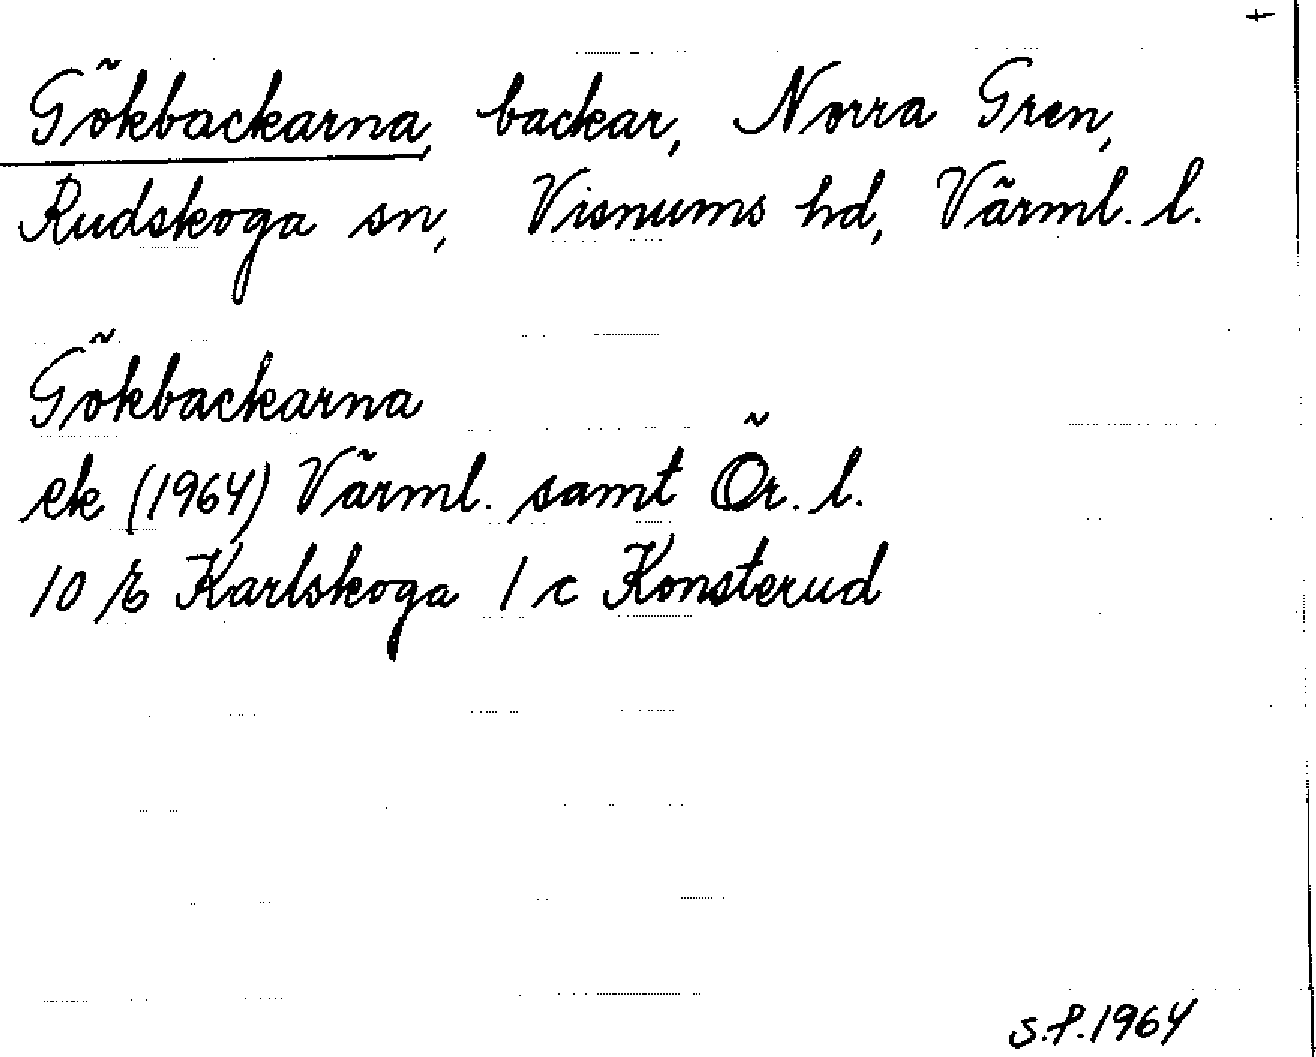 +
Gökbackarna, backar, Norra Gren,
Rudskoga sn, Visnums hd, Värml. l.
Gökbackarna
ek (1964) Värml. samt Ör. l.
10 E Karlskoga 1 c Konsterud
S.P. 1964